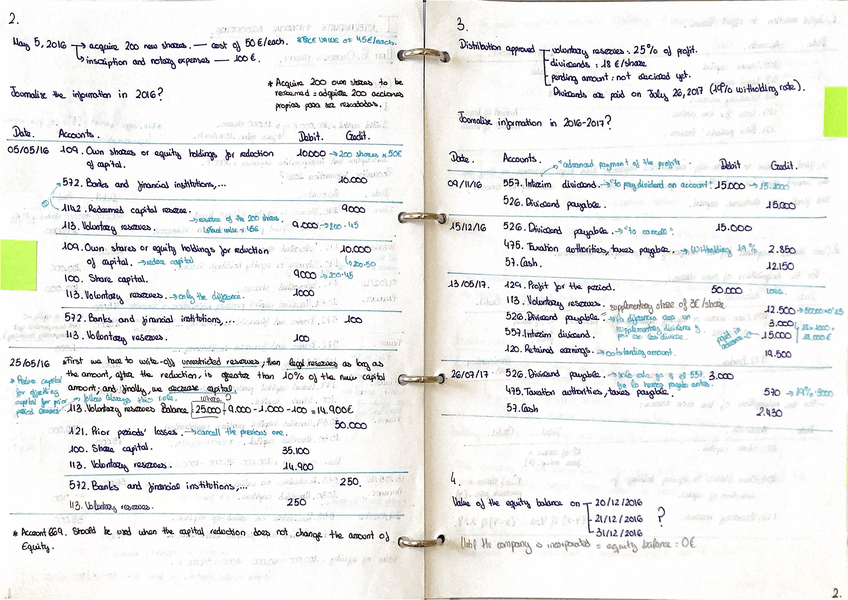 2.
May 5, 2016 → acquire 200 new shares. — cost of 50€/each. *FACE VALUE of 45€/each.
→ inscription and notary expenses — 100 €.
* Acquire 200 own shares to be
redeemed = adquirir 200 acciones
propias para ser rescatadas.
Journalise the information in 2016?
Date. Accounts. Debit. Credit.
05/05/16 109. Own shares or equity holdings for reduction 10.000 → 200 shares x 50€
of capital.
572. Banks and financial institutions,... 10.000
1142. Redeemed capital reserve. 9000
113. Voluntary reserves. → reserve of the 200 shares. 9.000 → 200·45
109. Own shares or equity holdings for reduction 10.000
of capital. → reduce capital 200·50
100. Share capital. 9000 → 200·45
113. Voluntary reserves. → only the difference. 1000
572. Banks and financial institutions,... 100
113. Voluntary reserves. 100
25/05/16 * First we have to write-off unrestricted reserves, then legal reserves as long as
the amount, after the reduction, is greater than 10% of the new capital
amount; and finally, we decrease capital.
* Reduce capital
for offsetting
capital for prior
period losses
→ follow always this rule.
113. Voluntary reserves Balance: 25.000 - 9.000 - 1.000 - 100 = 14.900€
50.000
121. Prior periods' losses. → cancell the previous one.
100. Share capital. 35.100
113. Voluntary reserves. 14.900
572. Banks and financial institutions,... 250.
113. Voluntary reserves. 250
* Account 669. Should be used when the capital reduction does not change the amount of
Equity.
3.
Distribution approved voluntary reserves: 25% of profit.
dividends: 18 €/share
pending amount: not decided yet.
Dividends are paid on July 26, 2017 (19% witholding rate).
Journalise information in 2016-2017?
Date. Accounts. Debit Credit.
→ "advanced payment of the profits"
09/11/16 557. Interim dividend. → "to pay dividend on account". 15.000
526. Dividend payable. 15.000
15/12/16 526. Dividend payable. → "to cancell". 15.000
475. Taxation authorities, taxes payable. → Witholding 19% 2.850
57. Cash. 12.150
13/05/17. 129. Profit for the period. 50.000
113. Voluntary reserves. 12.500 → 50000·0'25
supplementary share of 3€/share
526. Dividend payable. 3.000
557. Interim dividend. 15.000
120. Retained earnings. → outstanding amount. 19.500
26/07/17 526. Dividend payable. 3.000
475. Taxation authorities, taxes payable. 570 → 19%·3000
57. Cash 2.430
4.
Value of the equity balance on 20/12/2016
21/12/2016 ?
31/12/2016
Until the company is incorporated = equity balance = 0€
2.